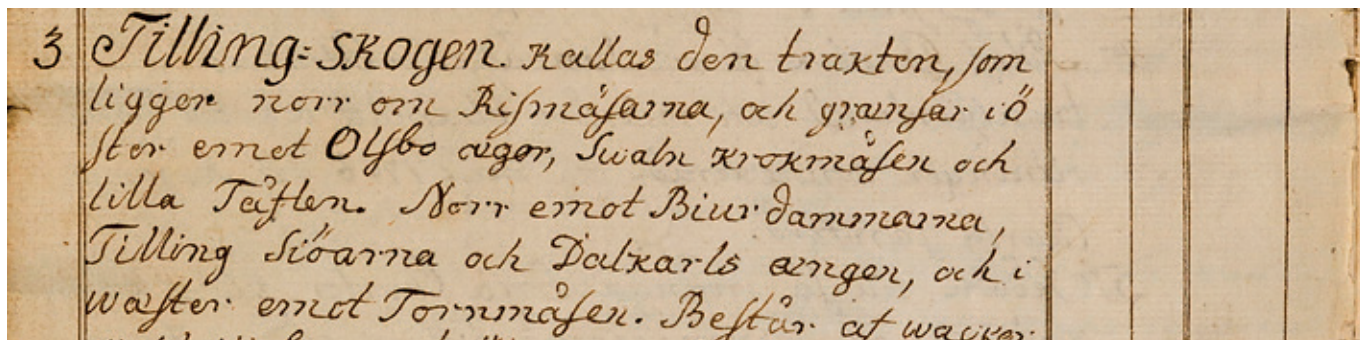 3 Tilling=skogen. kallas den trakten, som
ligger norr om Rismåsarna, och grænsar i ö
ster emot Olsbo æger, Swaln krokmåsen och
lilla Tåften. Norr emot Biur dammarna,
Tilling Siöarna och Dalkarls ængen, och i
wæster emot Tornmåsen. Består af wacker